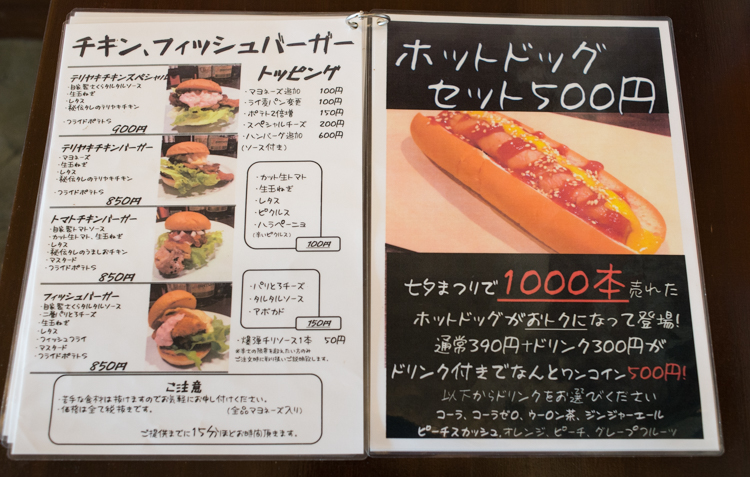 チキン、フィッシュバーガー
テリヤキチキンスペシャル
・自家製さくらタルタルソース
・生玉ねぎ
・レタス
・秘伝タレのテリヤキチキン
・フライドポテトS
900円
テリヤキチキンバーガー
・マヨネーズ
・生玉ねぎ
・レタス
・秘伝タレのテリヤキチキン
・フライドポテトS
850円
トマトチキンバーガー
・自家製トマトソース
・カット生トマト、生玉ねぎ
・レタス
・秘伝タレのうましおチキン
・マスタード
・フライドポテトS
850円
フィッシュバーガー
・自家製さくらタルタルソース
・二番パリとろチーズ
・生玉ねぎ
・レタス
・フィッシュフライ
・マスタード
・フライドポテトS
850円
トッピング
・マヨネーズ追加 100円
・ライ麦パン変更 100円
・ポテト2倍増 150円
・スペシャルチーズ 200円
・ハンバーグ追加 600円
(ソース付き)
・カット生トマト
・生玉ねぎ
・レタス
・ピクルス
・ハラペーニョ
(辛いピクルス)
100円
・パリとろチーズ
・タルタルソース
・アボカド
150円
・爆弾チリソース1本 50円
ご注意
・苦手な食材は抜けますのでお気軽にお申し付けください。
・価格は全て税抜きです。
(全品マヨネーズ入り)
ご提供までに15分ほどお時間頂きます。
ホットドッグ
セット500円
七夕まつりで1000本売れた
ホットドッグがおトクになって登場!
通常390円+ドリンク300円が
ドリンク付きでなんとワンコイン500円!
以下からドリンクをお選びください
コーラ、コーラゼロ、ウーロン茶、ジンジャーエール
ピーチスカッシュ、オレンジ、ピーチ、グレープフルーツ